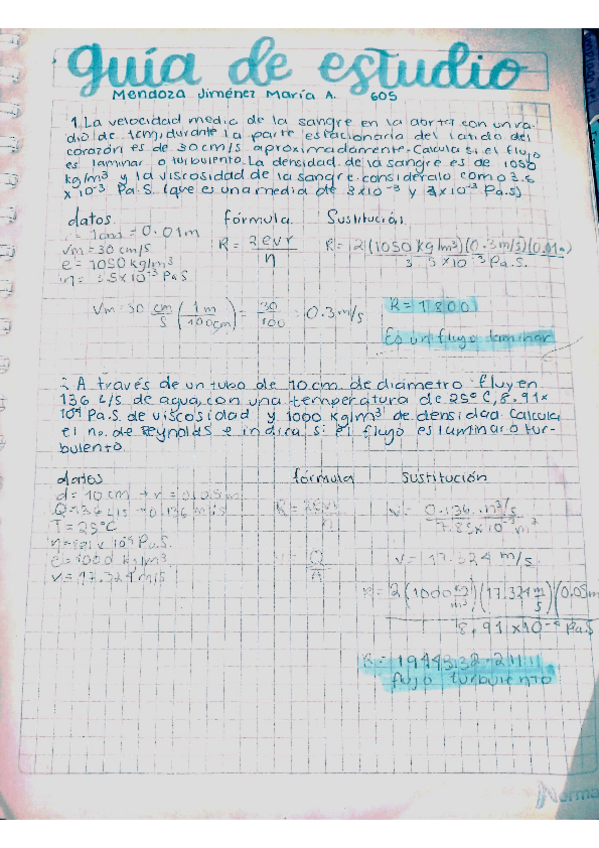 guía de estudio
Mendoza Jiménez María A. 605
1. La velocidad media de la sangre en la aorta con un ra-
dio de 1cm, durante la parte estacionaria del latido del
corazón es de 30 cm/s aproximadamente. Calcula si el flujo
es laminar o turbulento. La densidad de la sangre es de 1050
kg/m³ y la viscosidad de la sangre considéralo como 3.5
x 10⁻³ Pa.S. (que es una media de 3x10⁻³ y
datos fórmula Sustitución
1cm = 0.01m
vm = 30 cm/s
R = 2evr / η
R = 2(1050 kg/m³)(0.3 m/s)(0.01m) / 3.5x10⁻³ Pa.S.
e = 1050 kg/m³
η = 3.5x10⁻³ Pa.S
Vm = 30 cm/s (1m / 100cm) = 30/100 = 0.3 m/s
R = 1800
Es un flujo laminar
2. A través de un tubo de 10 cm de diametro fluyen
136 L/s de agua, con una temperatura de 25°C, 8.91x
Pa.S. de viscosidad y 1000 kg/m³ de densidad. Calcula
el no. de Reynolds e indica si el flujo es laminar o tur-
bulento.
datos fórmula sustitución
d = 10 cm → r =
Q = 136 L/s → 0.136
T = 25°C
R = 2evr / η
v = 0.136 m³/s / 7.85x10⁻³ m²
Pa.S.
e = 1000 kg/m³
v = 17.324 m/s
v = Q / A
v = 17.324 m/s
R = 2(1000 kg/m³)(17.324 m/s)(0.05m / 8.91x10⁻⁴ Pa.S
flujo turbulento
Norma